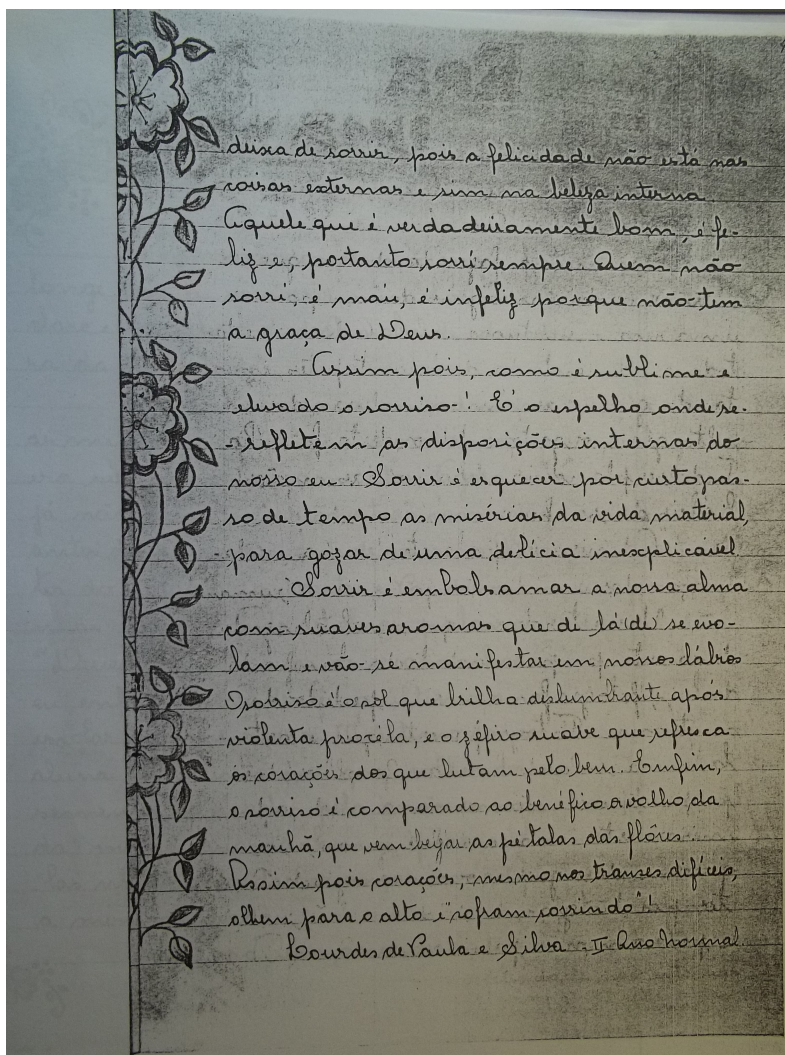 deixa de sorrir, pois a felicidade não está nas
coisas externas e sim na beleza interna.
Aquele que é verdadeiramente bom, é fe-
liz e, portanto sorri sempre. Quem não
sorri, é mau, é infeliz porque não tem
a graça de Deus.
Assim pois, como é sublime e
elevado o sorriso! É o espelho onde se
refletem as disposições internas do
nosso eu. Sorrir é esquecer por curto pas-
so de tempo as misérias da vida material,
para gozar de uma delícia inexplicavel
Sorrir é embalsamar a nossa alma
com suaves aromas que de lá (de) se evo-
lam e vão se manifestar em nossos lábios
O sorriso é o sol que brilha deslumbrante após
violenta procéla, é o zéfiro suave que refresca
os corações dos que lutam pelo bem. Emfim,
o sorriso é comparado ao benéfico orvalho da
manhã, que vem beijar as pétalas das flôres.
Assim pois corações, mesmo nos transes difíceis,
olhem para o alto e "sofram sorrindo"!
Lourdes de Paula e Silva - II Ano Normal